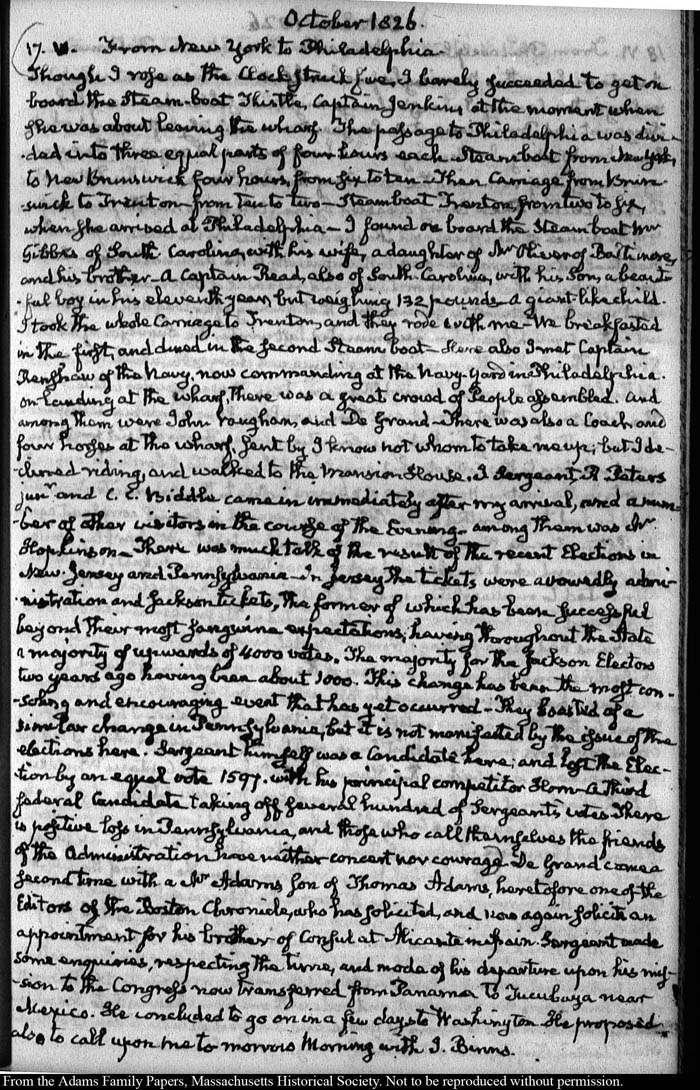 October 1826.
17. VI. From New York to Philadelphia
Though I rose as the Clock struck five, I barely succeeded to get on
board the Steam-boat Thistle, Captain Jenkins, at the moment when
she was about leaving the wharf. The passage to Philadelphia was divi-
-ded into three equal parts of four hours each. Steamboat from New York,
to New Brunswick four hours, from six to ten. Then Carriage from Brun-
-swick to Trenton—from ten to two—Steamboat Trenton, from two to six,
when she arrived at Philadelphia—I found on board the Steam boat Mr
Gibbes of South Carolina, with his wife, a daughter of Mr Oliver of Baltimore,
and his brother—A Captain Read, also of South-Carolina, with his Son, a beauti-
-ful boy in his eleventh year, but weighing 132 pounds—A giant-like child.
I took the whole Carriage to Trenton, and they rode with me—We breakfasted
in the first, and dined in the second Steam boat—Here also I met Captain
Renshaw of the Navy, now commanding at the Navy-Yard in Philadelphia.
On landing at the wharf, there was a great crowd of People assembled. And
among them were John Vaughan, and De Grand—There was also a Coach and
four horses at the wharf, sent by I know not whom to take me up; but I de-
-clined riding, and walked to the Mansion House. J Sergeant, R Peters
junr and C. C. Biddle came in immediately after my arrival, and a num-
-ber of other visitors in the course of the Evening—among them was Mr
Hopkinson—There was much talk of the result of the recent Elections in
New-Jersey and Pennsylvania—In Jersey the tickets were avowedly admi-
-nistration and Jackson tickets, the former of which has been successful
beyond their most sanguine expectations; having throughout the State
a majority of upwards of 4000 votes. The majority for the Jackson Electors
two years ago having been about 1000. This change has been the most con-
-soling and encouraging event that has yet occurred—They boasted of a
similar change in Pennsylvania, but it is not manifested by the issue of the
elections here. Sergeant himself was a Candidate here; and lost the Elec-
-tion by an equal vote 1597. with his principal competitor Horn—A third
federal Candidate taking off several hundred of Sergeant's votes. There
is positive loss in Pennsylvania, and those who call themselves the friends
of the Administration have neither concert nor courage. De Grand came a
second time with a Mr Adams son of Thomas Adams, heretofore one of the
Editors of the Boston Chronicle, who has solicited, and now again solicits an
appointment for his brother of Consul at Alicante in Spain. Sergeant made
some enquiries, respecting the time, and mode of his departure upon his mis-
-sion to the Congress now transferred from Panama to Tucubaya near
Mexico. He concluded to go on in a few days to Washington. He proposed
also to call upon me to morrow Morning with J. Binns.
From the Adams Family Papers, Massachusetts Historical Society. Not to be reproduced without permission.